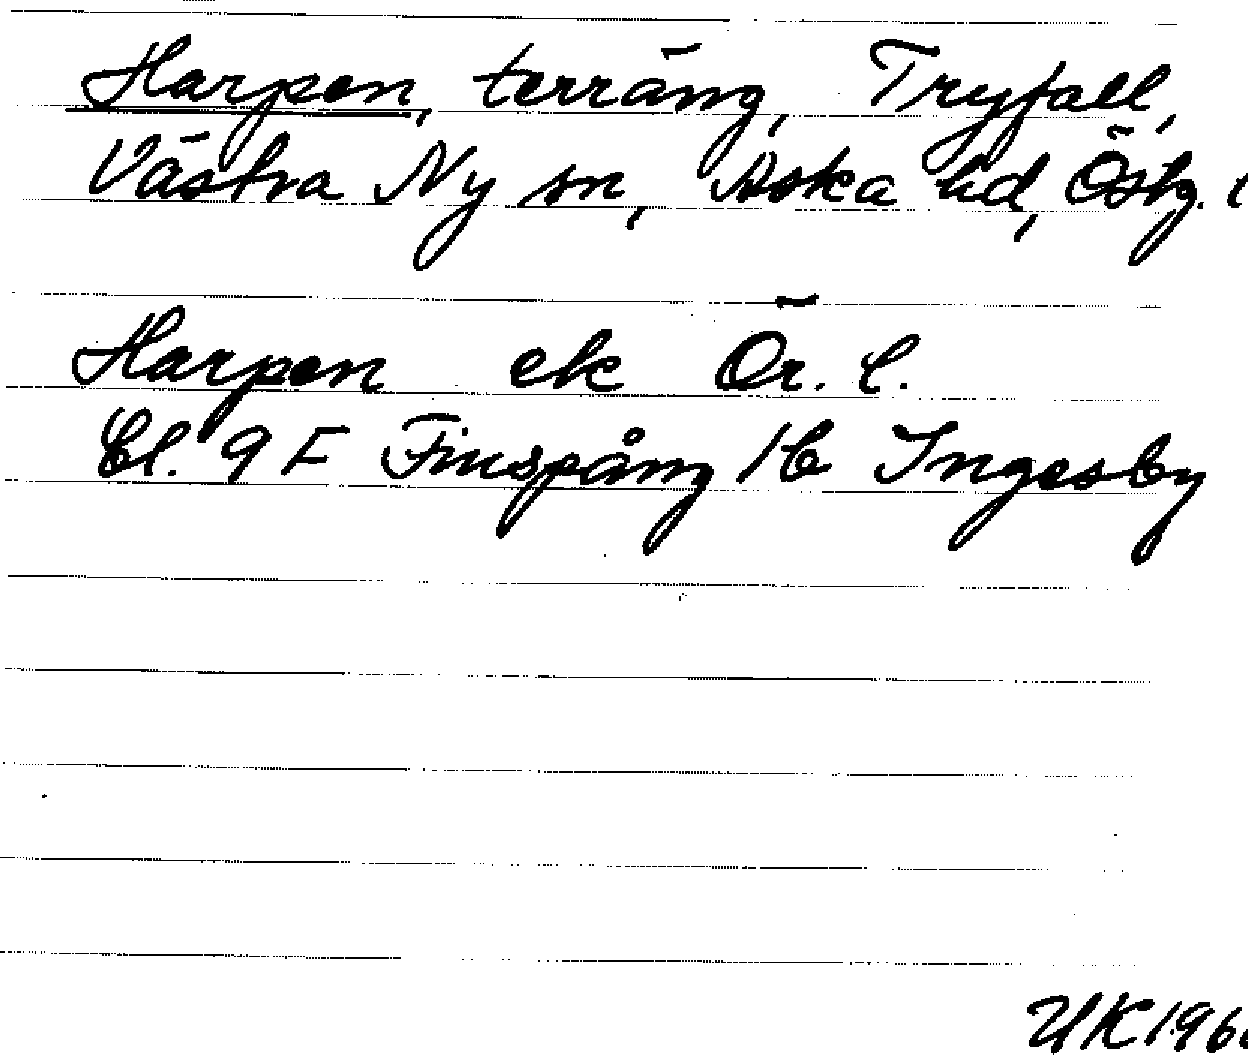 Harpen, terräng, Tryfall,
Västra Ny sn, Aska hd, Östg. l
Harpen ek Ör. l.
Bl. 9 F Finspång 1b Ingesby
UK 196